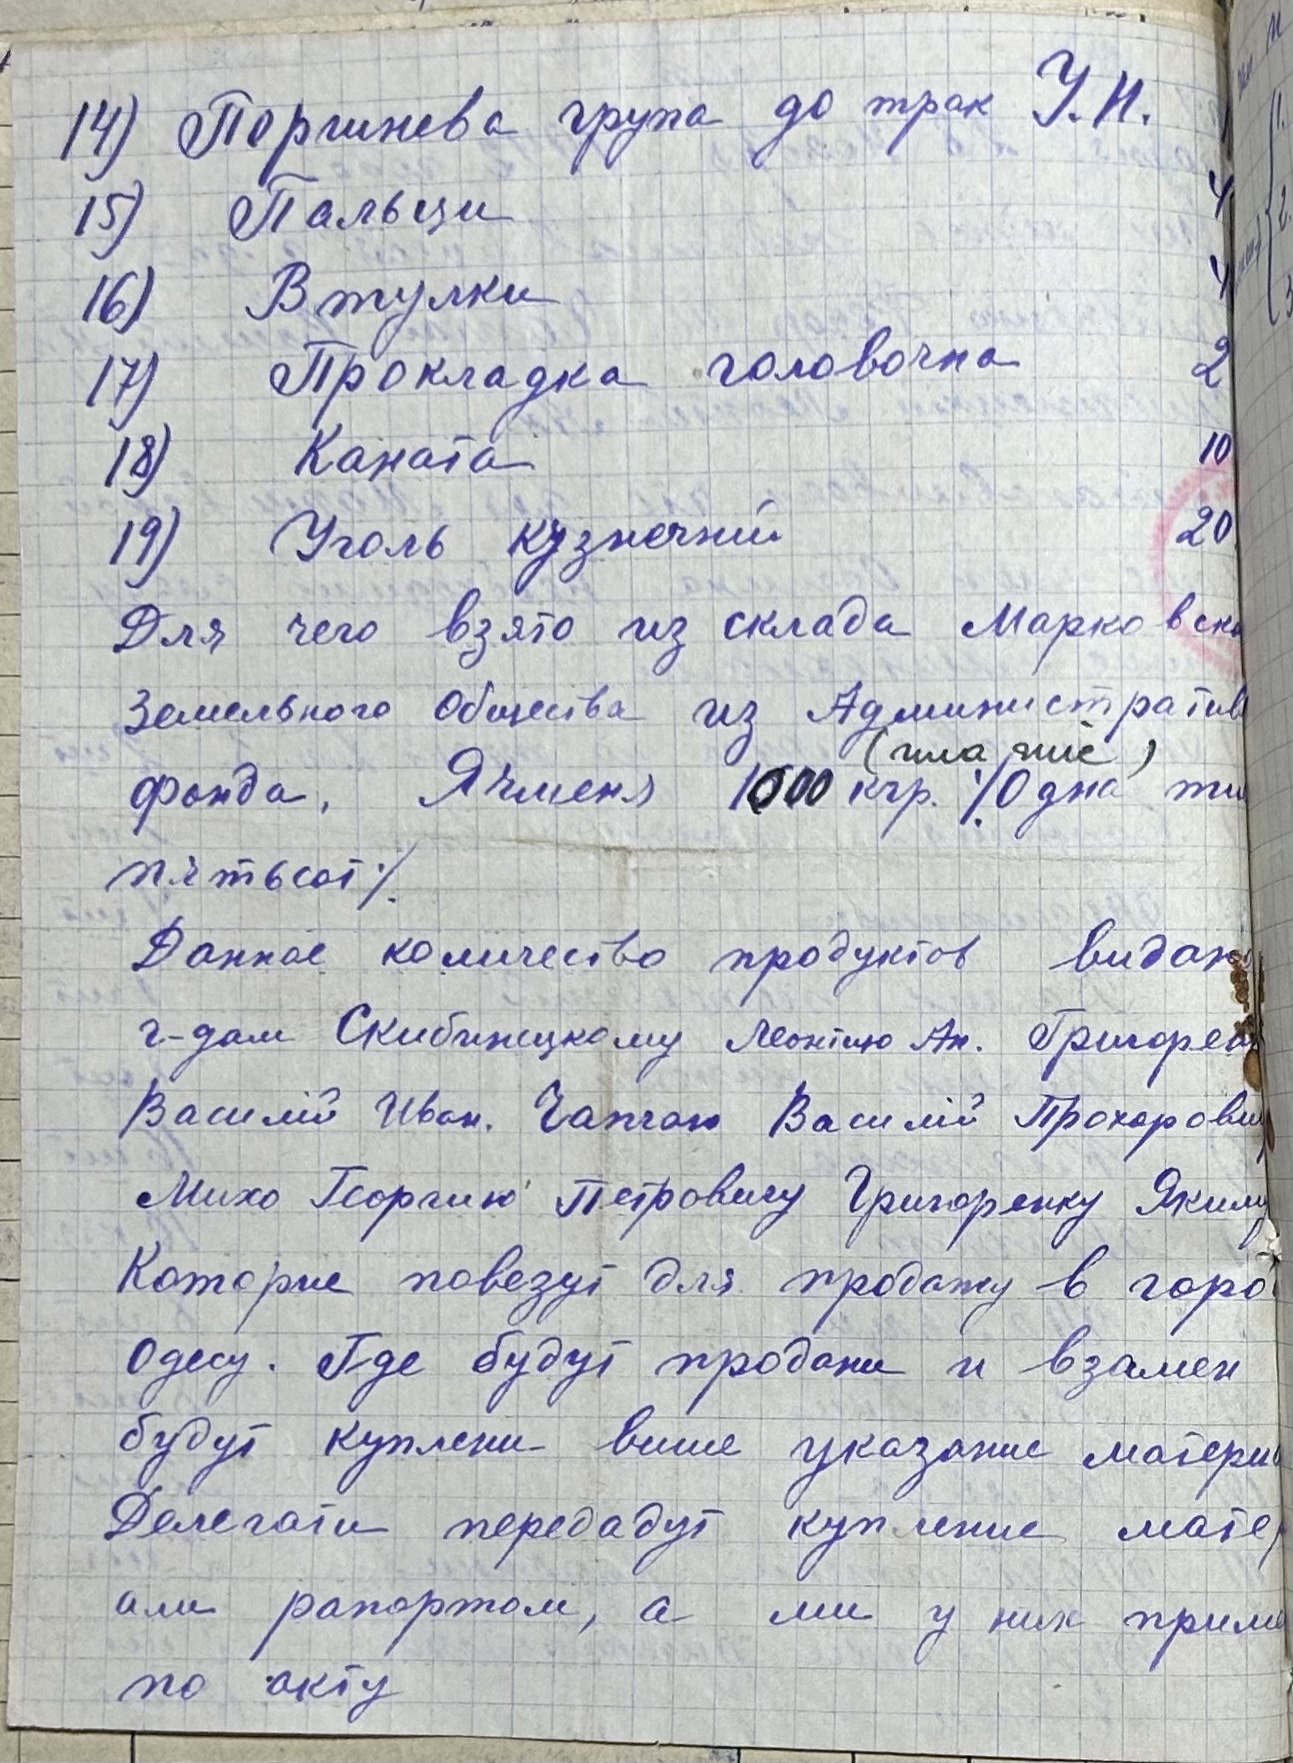 14) Поршнева група до трак У.Н.
15) Пальци 4
16) Втулки 4
17) Прокладка головочна 2
18) Каната 10
19) Уголь кузнечний 20
Для чего взято из склада Марковско
Земельного Общества из Административ
(мла
фонда, Ячменя 1000 кгр. ·/. Одна ти
пятьсот ·/.
Данное количество продуктов видано
г-дам Скибинецкому Леонтию Ан. Григорен
Василій Иван. Чапчаю Василій Прохорович
Михо Георгию Петровичу Григоренку Якиму
Которие повезут для продажу в горо
Одесу. Где будут продани и взамен
будут куплени више указание матери
Делегати передадут купление матер
али рапортом, а ми у них приме
по акту